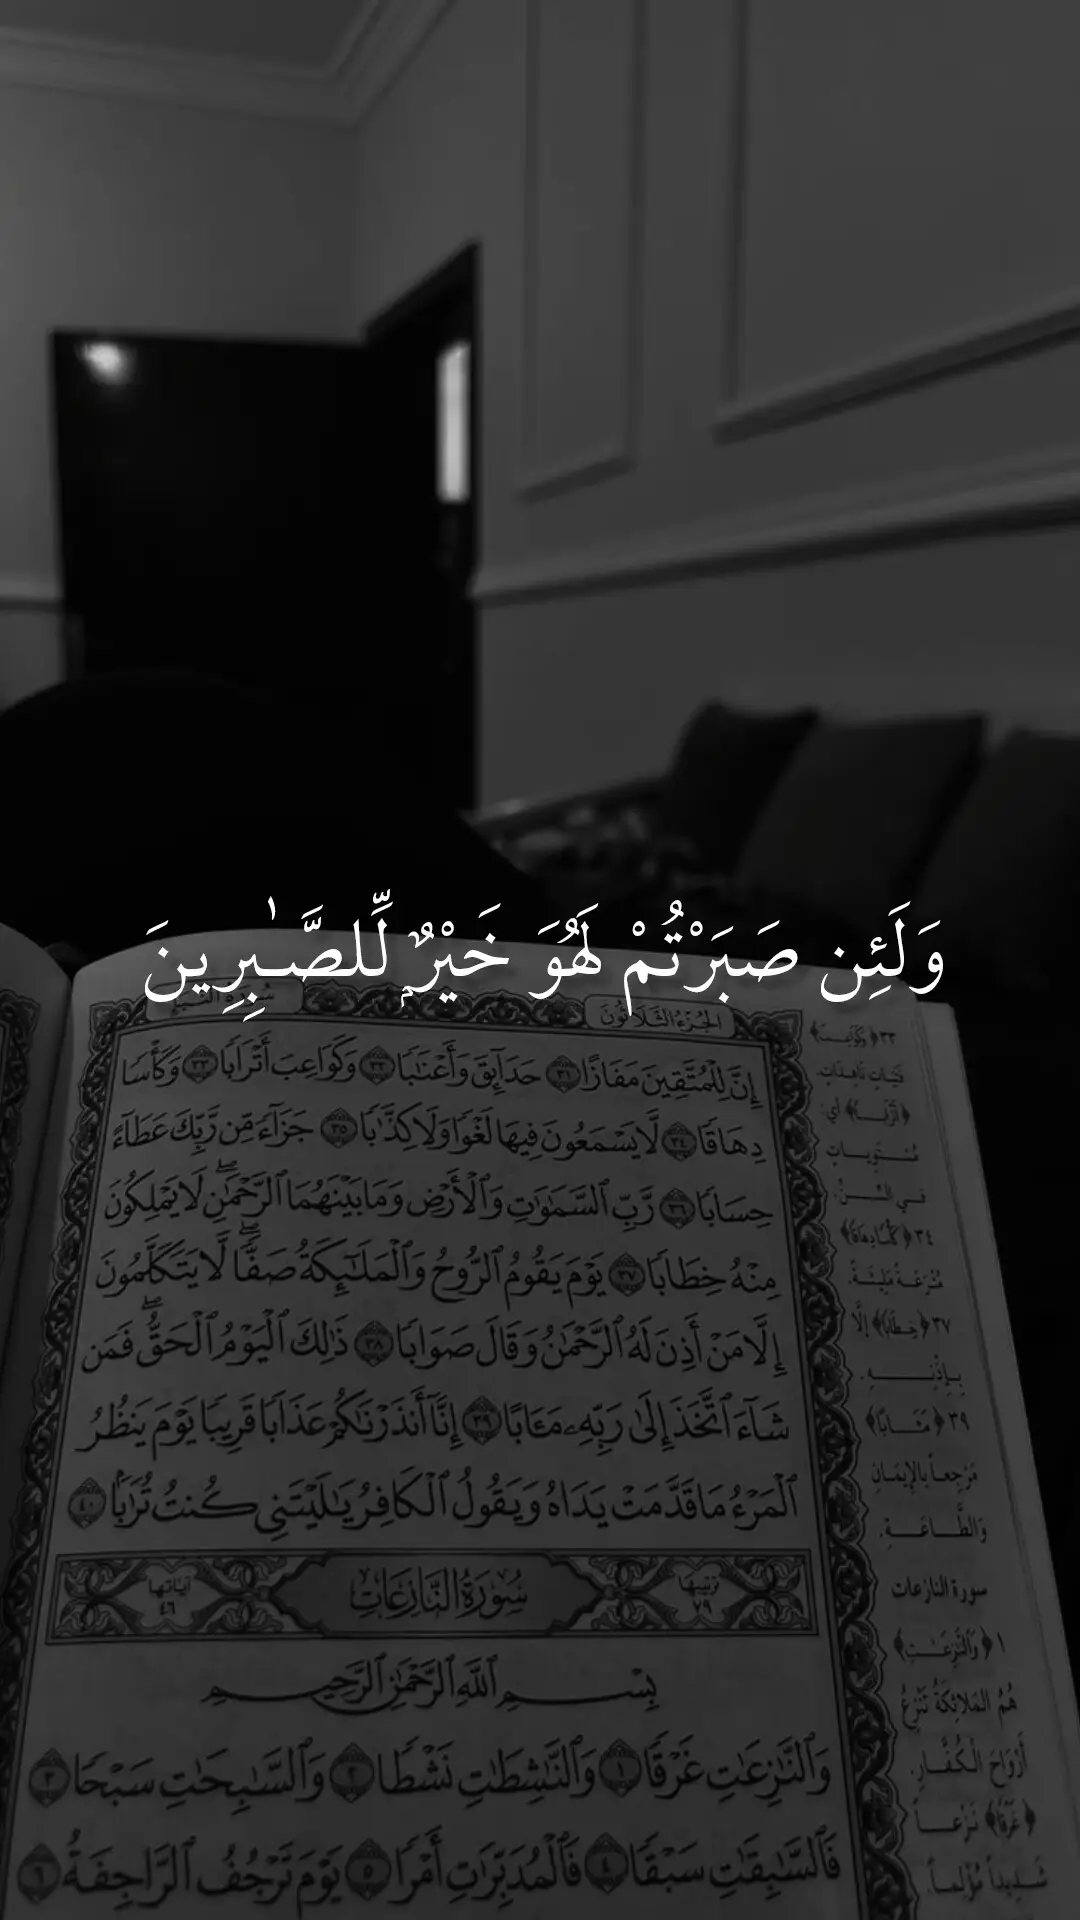 وَلَئِن صَبَرْتُمْ لَهُوَ خَيْرٌۭ لِّلصَّـٰبِرِينَ
سُورَةُ النَّبَإِ
الجُزْءُ الثَّلَاثُونَ
إِنَّ لِلْمُتَّقِينَ مَفَازًا ٣١ حَدَآئِقَ وَأَعْنَٰبًا ٣٢ وَكَوَاعِبَ أَتْرَابًا ٣٣ وَكَأْسًا
دِهَاقًا ٣٤ لَّا يَسْمَعُونَ فِيهَا لَغْوًا وَلَا كِذَّٰبًا ٣٥ جَزَآءً مِّن رَّبِّكَ عَطَآءً
حِسَابًا ٣٦ رَّبِّ ٱلسَّمَٰوَٰتِ وَٱلْأَرْضِ وَمَا بَيْنَهُمَا ٱلرَّحْمَٰنِ ۖ لَا يَمْلِكُونَ
مِنْهُ خِطَابًا ٣٧ يَوْمَ يَقُومُ ٱلرُّوحُ وَٱلْمَلَٰٓئِكَةُ صَفًّا ۖ لَّا يَتَكَلَّمُونَ
إِلَّا مَنْ أَذِنَ لَهُ ٱلرَّحْمَٰنُ وَقَالَ صَوَابًا ٣٨ ذَٰلِكَ ٱلْيَوْمُ ٱلْحَقُّ ۖ فَمَن
شَآءَ ٱتَّخَذَ إِلَىٰ رَبِّهِۦ مَـَٔابًا ٣٩ إِنَّآ أَنذَرْنَٰكُمْ عَذَابًا قَرِيبًا يَوْمَ يَنظُرُ
ٱلْمَرْءُ مَا قَدَّمَتْ يَدَاهُ وَيَقُولُ ٱلْكَافِرُ يَٰلَيْتَنِى كُنتُ تُرَٰبًۢا ٤٠
ترتيبها ٧٩ سُورَةُ النَّازِعَاتِ آياتها ٤٦
بِسْمِ ٱللَّهِ ٱلرَّحْمَٰنِ ٱلرَّحِيمِ
وَٱلنَّٰزِعَٰتِ غَرْقًا ١ وَٱلنَّٰشِطَٰتِ نَشْطًا ٢ وَٱلسَّٰبِحَٰتِ سَبْحًا ٣
فَٱلسَّٰبِقَٰتِ سَبْقًا ٤ فَٱلْمُدَبِّرَٰتِ أَمْرًا ٥ يَوْمَ تَرْجُفُ ٱلرَّاجِفَةُ ٦
٣٣ ﴿وَكَوَاعِبَ﴾
فَتَيَاتٍ نَاهِدَاتٍ.
﴿أَتْرَابًا﴾ أي:
مُسْتَوِيَاتٍ
في السِّنِّ.
٣٤ ﴿كَأْسًا دِهَاقًا﴾
مُتْرَعَةً مَلِيئَةً.
٣٧ ﴿خِطَابًا﴾ إلَّا
بِإِذْنِهِ.
٣٩ ﴿مَـَٔابًا﴾
مَرْجِعاً بِالإِيمَانِ
وَالطَّاعَةِ.
سورة النازعات
١ ﴿وَٱلنَّٰزِعَٰتِ﴾
هُمُ المَلائِكَةُ تَنْزِعُ
أَرْوَاحَ الْكُفَّارِ.
﴿غَرْقًا﴾ نَزْعاً
شَدِيداً مُؤْلِماً.